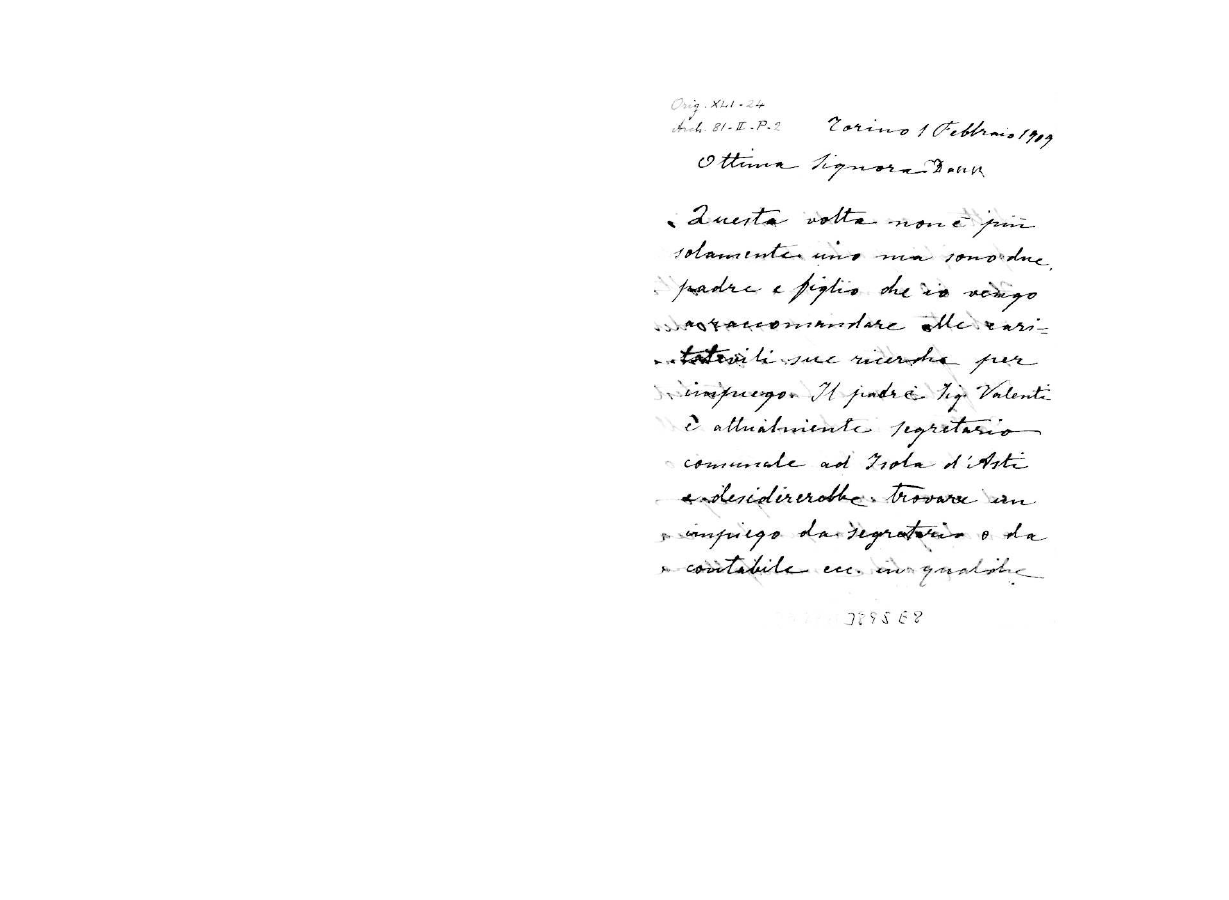 Orig. XLI-24
Arch. 81-II-P-2
Torino 1 Febbraio 1909
Ottima Signora Donn
Questa volta non è più
solamente uno ma sono due,
padre e figlio che io vengo
a raccomandare alle cari=
tatevili sue ricerche per
impiego. Il padre Sig. Valenti
è attualmente segretario
comunale ad Isola d'Asti
e desidirerebbe trovare un
impiego da segretario o da
contabile ecc. in qualche
3295E8